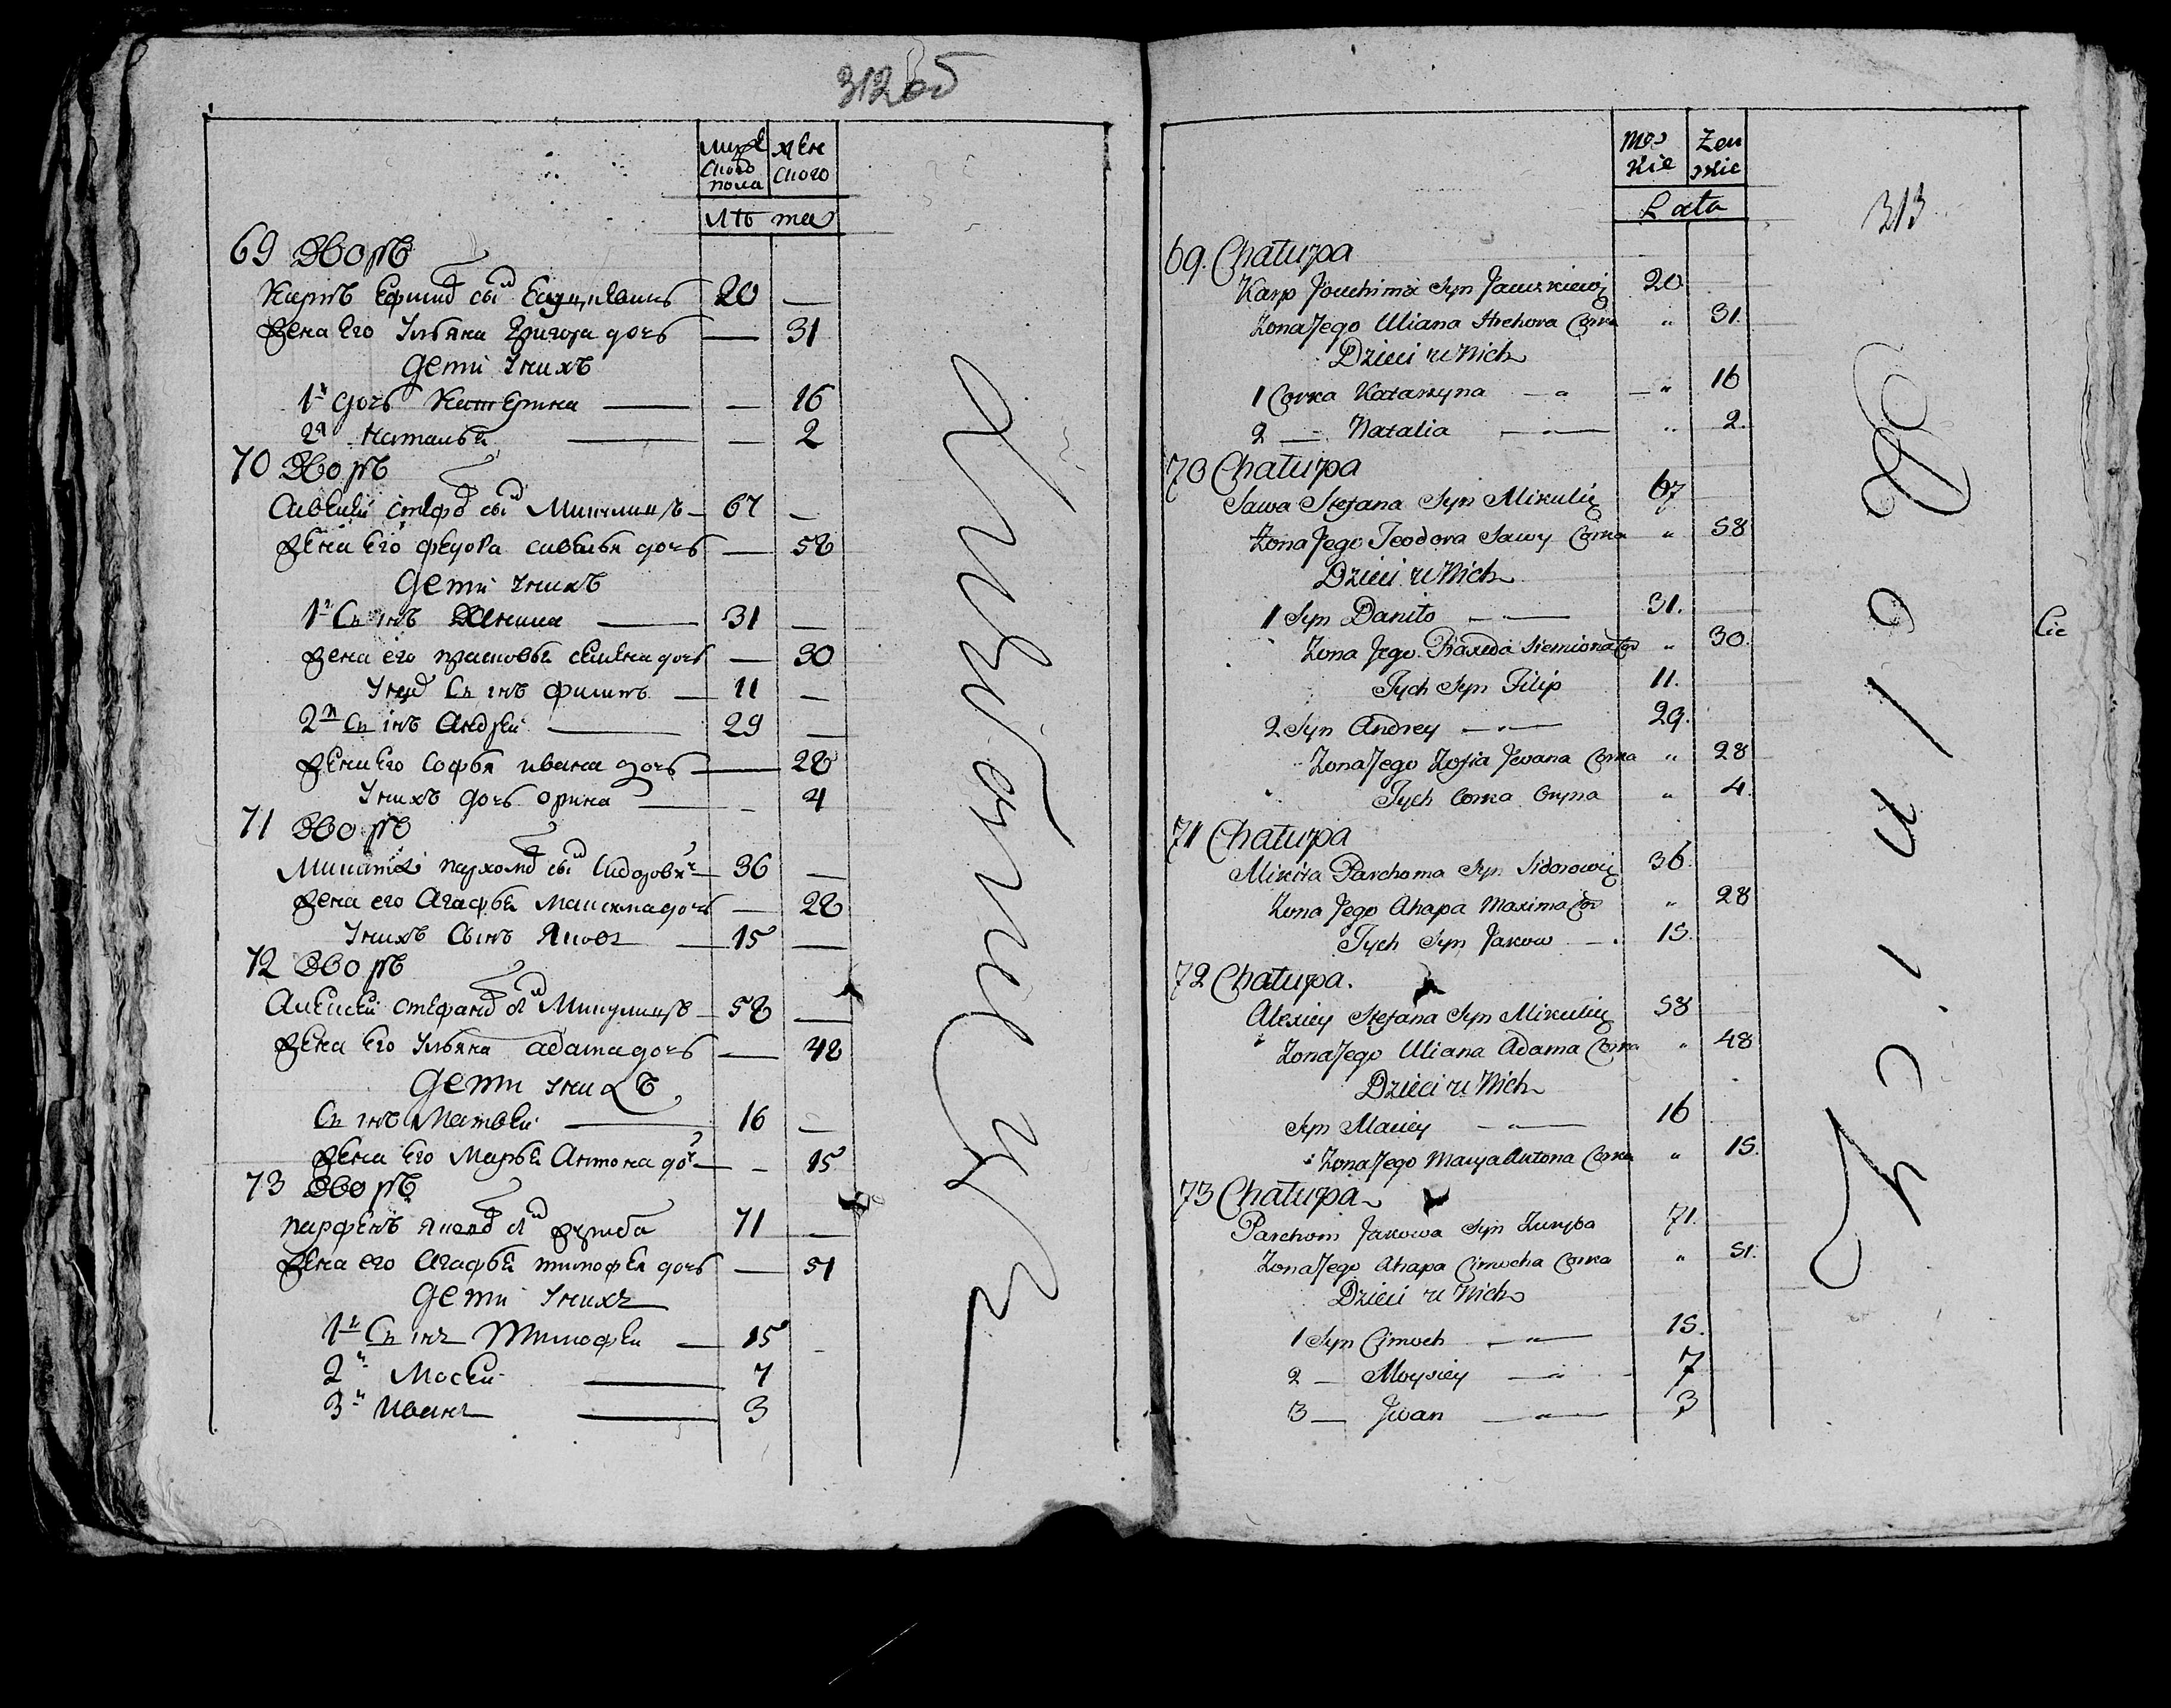 312 об
мужескаго пола
женскаго
лѣта
69 Дворъ
Карпъ Ефима сын
20 —
Жена Его Ульяна Григора дочь — 31
Дети у них
1я дочь Катерина — — 16
2я Наталья — — 2
70 Дворъ
Савелий Стефа сын Микулицъ — 67 —
Жена Его Федора Савелья дочь — 58
Дети у нихъ
1й Сынъ Данила — 31 —
Жена его Прасковья Семена дочь — 30
У них Сынъ Филипъ — 11 —
2й Сынъ Андрей — 29 —
Жена Его Софья Ивана дочь — 28
У нихъ дочь Орина — — 4
71 Дворъ
Микита Пархома сын Сидоровичъ — 36 —
Жена его Агафья Максима дочь — 28
У нихъ Сынъ Яковъ — 15 —
72 Дворъ
Алексей Стефана сын Микулицъ — 58 —
Жена Его Ульяна Адама дочь — 48
Дети у нихъ
Сынъ Матвей — 16 —
Жена Его Марья Антона доч — — 15
73 Дворъ
Парфенъ Якова сын Журба 71 —
Жена его Агафья Тимофея дочь — 51
Дети у нихъ
1й Сынъ Тимофей — 15 —
2й Мосей — 7
3й Иванъ — 3
313
Męskie
Żeńskie
Lata
69. Chałupa
Karp Jouchima Syn
20
Zona Jego Uliana Hrehora Corka „ 31.
Dzieci u Nich
1 Corka Katarzyna — „ — „ 16
2 — Natalia — „ — „ 2.
70 Chałupa
Sawa Stefana Syn Mikulicz 67
Zona Jego Teodora Sawy Corka „ 58
Dzieci u Nich
1 Syn Daniło — „ — 31.
Zona Jego Praxeda Siemiona Cor „ 30.
Tych Syn Filip 11.
2 Syn Andrey — „ — 29.
Zona Jego Zofia Jwana Corka „ 28
Tych Corka Oryna „ 4.
71 Chałupa
Mikita Parchoma Syn Sidorowicz 36.
Zona Jego Ahapa Maxima Cor „ 28
Tych Syn Jakow — . 15.
72 Chałupa.
Alexiey Stefana Syn Mikulicz 58
Zona Jego Uliana Adama Corka „ 48
Dzieci u Nich
Syn Maciey — „ — 16
Zona Jego Marya Antona Corka „ 15.
73 Chałupa
Parchom Jakowa Syn Zurba 71.
Zona Jego Ahapa Cimocha Corka „ 51.
Dzieci u Nich
1 Syn Cimoch — „ — 15.
2 — Moysiey — „ — 7
3 — Jwan — „ — 3